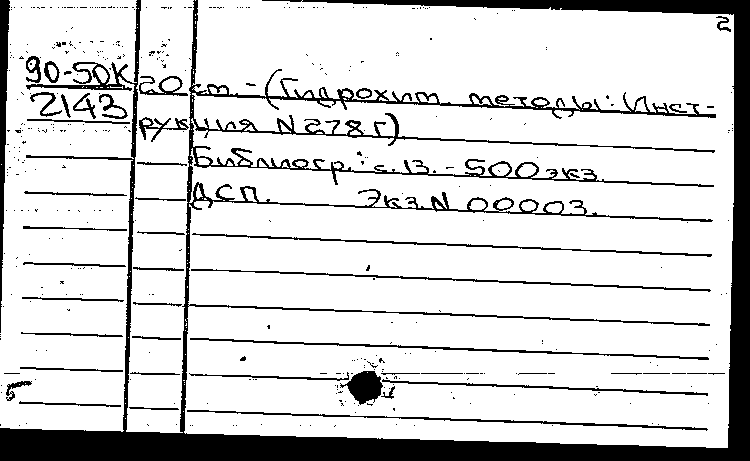 2
90-50К 20 ст. - (Гидрохим. методы: Инст-
2143 рукция N 278 Г)
Библиогр.: с. 13. - 500 экз.
ДСП. Экз. N 00003.
5